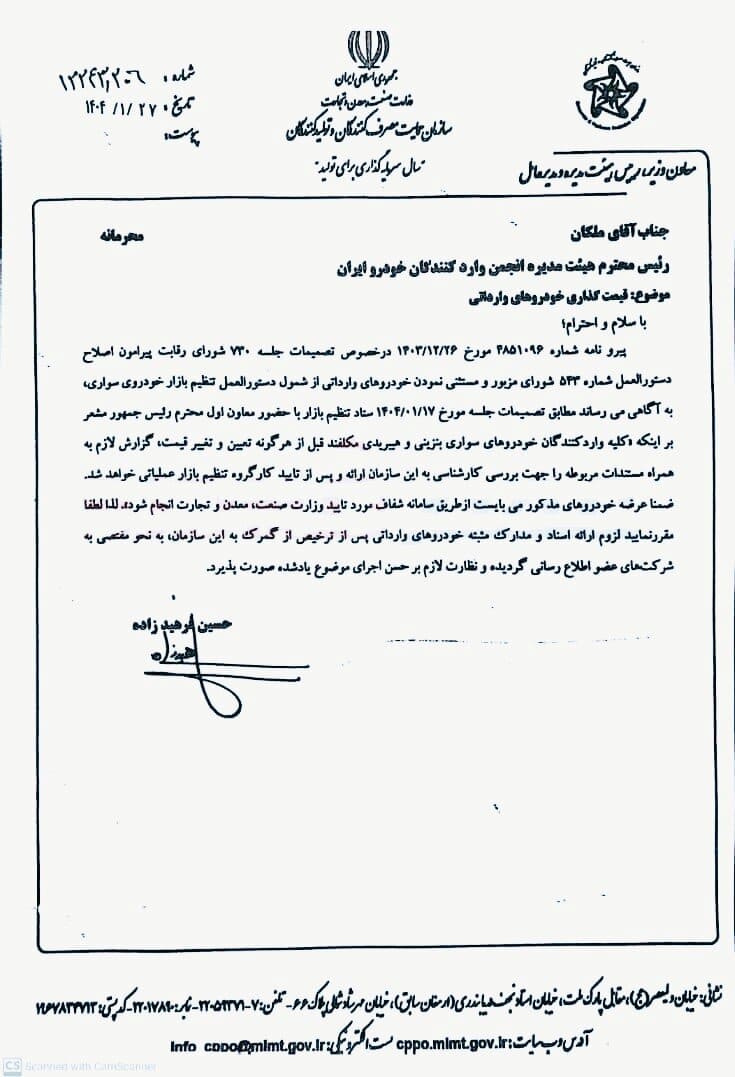 جمهوری اسلامی ایران
وزارت صنعت، معدن و تجارت
سازمان حمایت مصرف کنندگان و تولیدکنندگان
"سال سرمایه گذاری برای تولید"
شماره :
تاریخ : ۱۴۰۴/۱/۲۷
پیوست:
معاون وزیر، رییس هیئت مدیره و مدیرعامل
جناب آقای ملکان
محرمانه
رئیس محترم هیئت مدیره انجمن وارد کنندگان خودرو ایران
موضوع: قیمت گذاری خودروهای وارداتی
با سلام و احترام؛
پیرو نامه شماره ۴۸۵۱۰۹۶ مورخ ۱۴۰۳/۱۲/۲۶ درخصوص تصمیمات جلسه ۷۳۰ شورای رقابت پیرامون اصلاح
دستورالعمل شماره ۵۴۳ شورای مزبور و مستثنی نمودن خودروهای وارداتی از شمول دستورالعمل تنظیم بازار خودروی سواری،
به آگاهی می رساند مطابق تصمیمات جلسه مورخ ۱۴۰۴/۰۱/۱۷ ستاد تنظیم بازار با حضور معاون اول محترم رئیس جمهور مشعر
بر اینکه «کلیه واردکنندگان خودروهای سواری بنزینی و هیبریدی مکلفند قبل از هرگونه تعیین و تغییر قیمت، گزارش لازم به
همراه مستندات مربوطه را جهت بررسی کارشناسی به این سازمان ارائه و پس از تایید کارگروه تنظیم بازار عملیاتی خواهد شد.
ضمنا عرضه خودروهای مذکور می بایست ازطریق سامانه شفاف مورد تایید وزارت صنعت، معدن و تجارت انجام شود». لذا لطفا
مقررنمایید لزوم ارائه اسناد و مدارک مثبته خودروهای وارداتی پس از ترخیص از گمرک به این سازمان، به نحو مقتضی به
شرکت‌های عضو اطلاع رسانی گردیده و نظارت لازم بر حسن اجرای موضوع یادشده صورت پذیرد.
حسین فرهیدزاده
نشانی: خیابان ولیعصر(عج)، مقابل پارک ملت، خیابان استاد نجف دریابندری (ارمغان سابق)، خیابان مهرشاد شمالی پلاک ۶۶- تلفن: ۷-۲۲۰۵۹۳۷۱- نمابر: ۲۲۰۱۷۸۹۰- کدپستی:
آدرس وب سایت: cppo.mimt.gov.ir پست الکترونیکی: info_cppo@mimt.gov.ir
CS Scanned with CamScanner